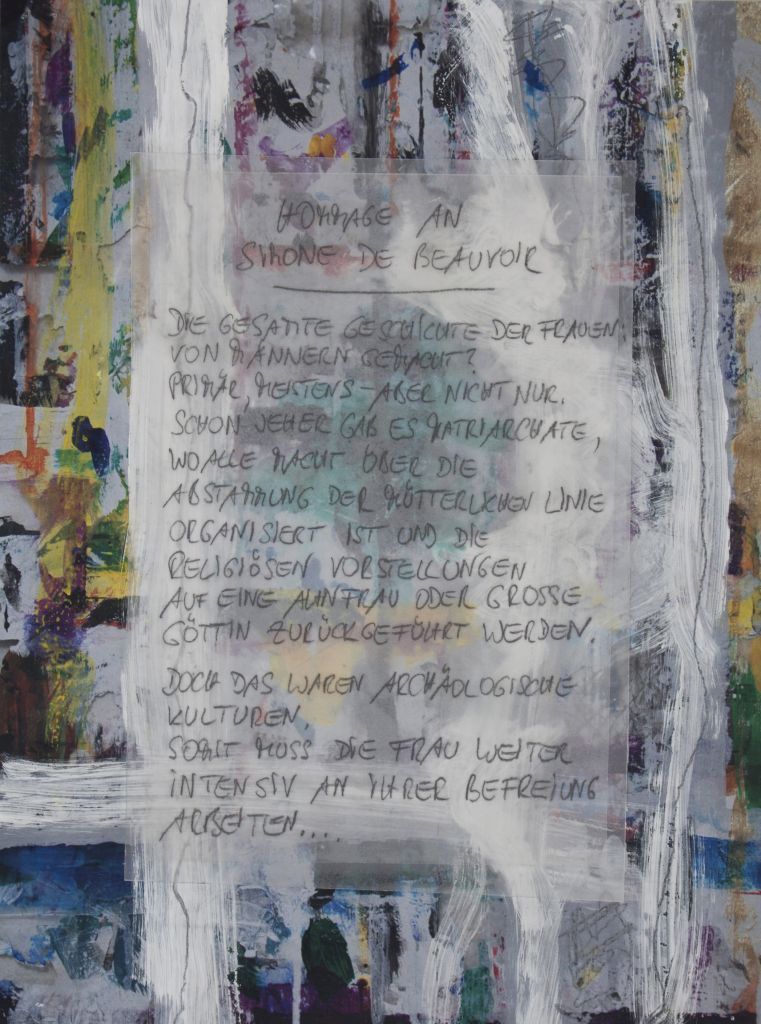 HOMMAGE AN
SIMONE DE BEAUVOIR
DIE GESAMTE GESCHICHTE DER FRAUEN:
VON MÄNNERN GEMACHT?
PRIMÄR, MEISTENS – ABER NICHT NUR.
SCHON JEHER GAB ES MATRIARCHATE,
WO ALLE MACHT ÜBER DIE
ABSTAMMUNG DER MÜTTERLICHEN LINIE
ORGANISIERT IST UND DIE
RELIGIÖSEN VORSTELLUNGEN
AUF EINE AHNFRAU ODER GROSSE
GÖTTIN ZURÜCKGEFÜHRT WERDEN.
DOCH DAS WAREN ARCHÄOLOGISCHE
KULTUREN,
SOMIT MUSS DIE FRAU WEITER
INTENSIV AN IHRER BEFREIUNG
ARBEITEN....